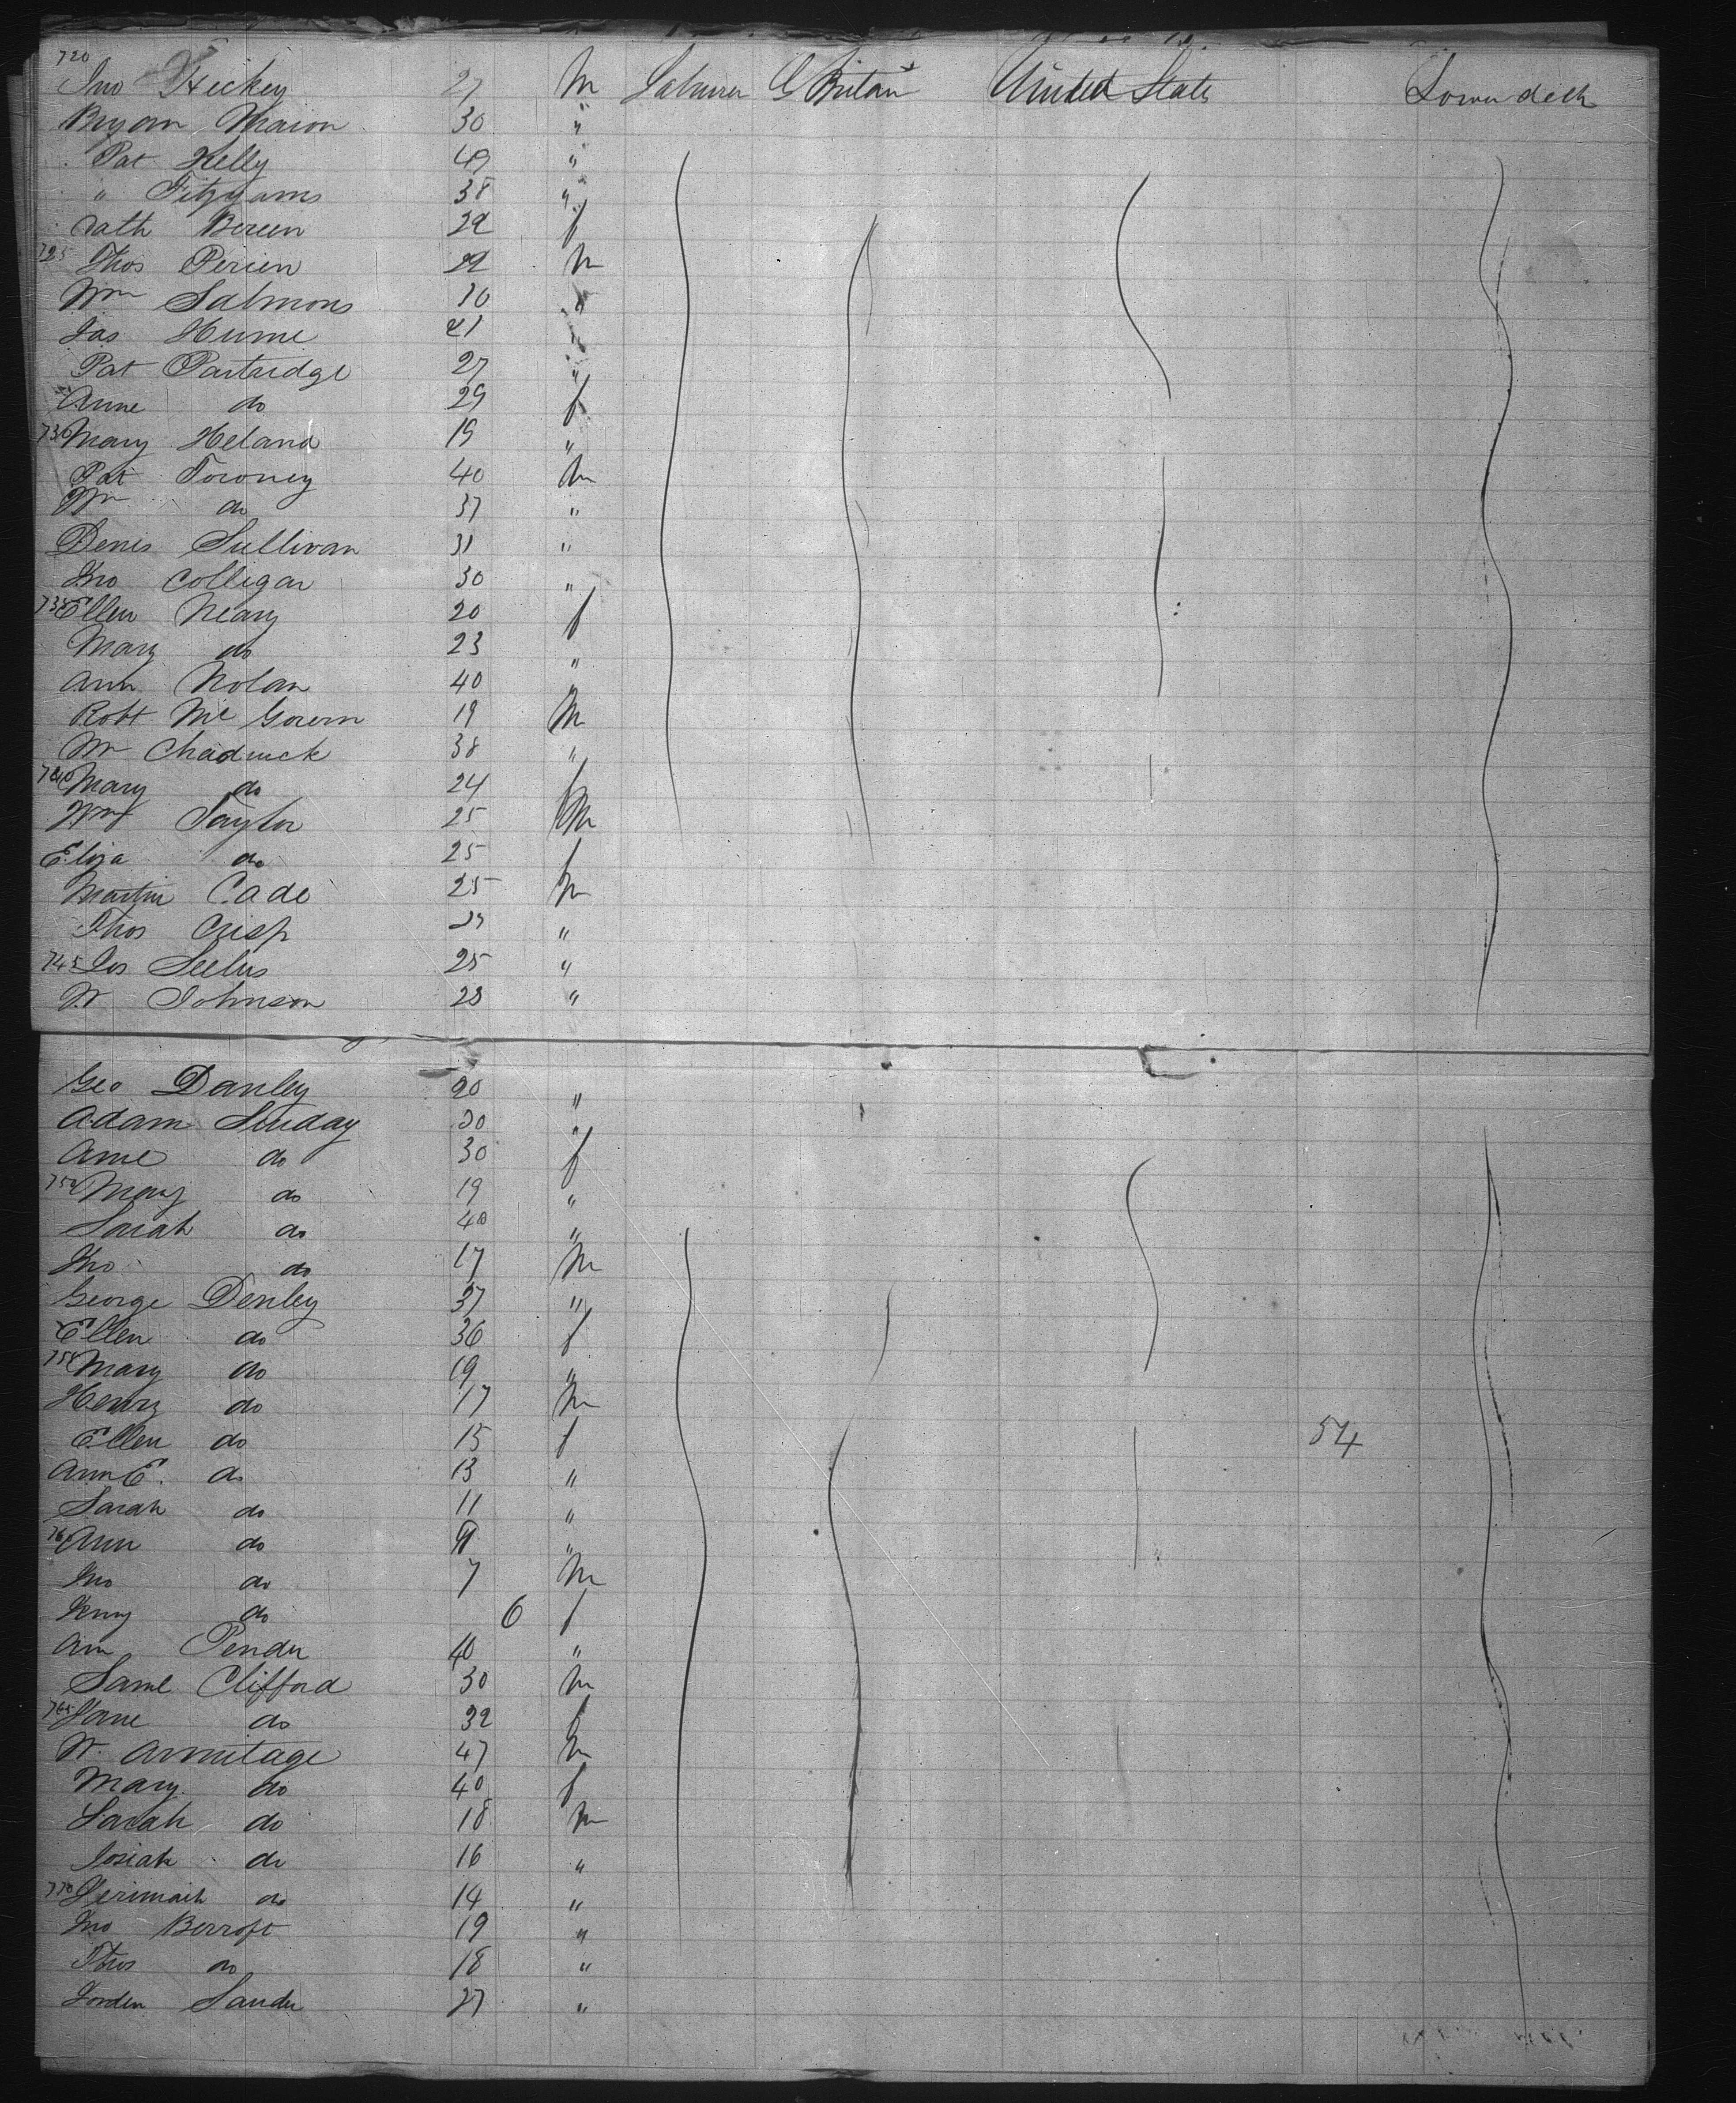 720 Jno Hickey 27 M Labourer G Britain United States Lower deck
Bryan Maion 30 "
Pat Kelly 49 "
" Fitzgams 38 "
Cath Bereen 22 f
725 Thos Perien 22 M
Wm Salmons 30 "
Jas Hume 21 "
Pat Partridge 27 "
Anne do 29 f
730 Mary Heland 19 "
Pat Towney 40 M
Wm do 37 "
Denis Sullivan 31 "
Jno Colligan 30 "
735 Ellen Neary 20 f
Mary do 23 "
Ann Nolan 40 "
Robt Mc Govern 19 M
Wm Chadwick 38 "
740 Mary do 24 f
Wm Taylor 25 M
Eliza do 25 f
Martin Cade 25 M
Thos Crisp "
745 Jos Seelus 25 "
W Johnson 23 "
Geo Danley 20 "
Adam Sunday 30 "
Anne do 30 f
750 Mary do 19 "
Sarah do 40 "
Jno do 17 M
George Denley 37 "
Ellen do 36 f
755 Mary do 19 "
Henry do 17 M
Ellen do 15 f 54
Ann E. do 13 "
Sarah do 11 "
760 Ann do 9 "
Jno do 7 M
Jenny do 6 f
Ann Pender 40 "
Saml Clifford 30 M
765 Jane do 32 f
W. Armitage 47 M
Mary do 40 f
Sarah do 18 M
Josiah do 16 "
770 Jerimaih do 14 "
Jno Berroft 19 "
Thos do 18 "
Jorden Sander 27 "